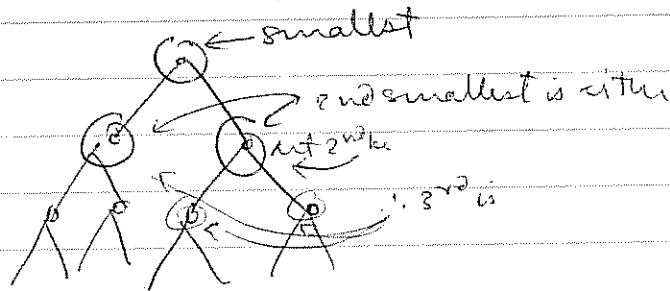 smallest
2nd smallest is either
2nd
∴ 3rd is